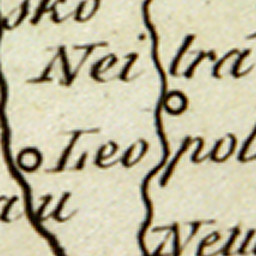 sko
Neitra
Leopol
au
Neu